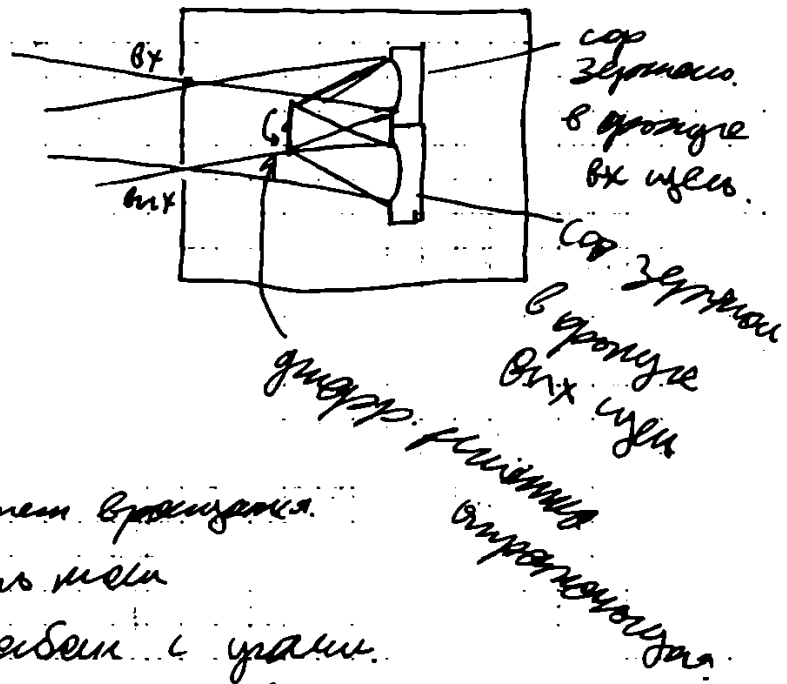 вх
вых
сфр
зеркало.
в фокусе
вх щель.
Сфр зеркало
в фокусе
вых щел
дифр. решётка
отражающая.
вращается.
с углами.